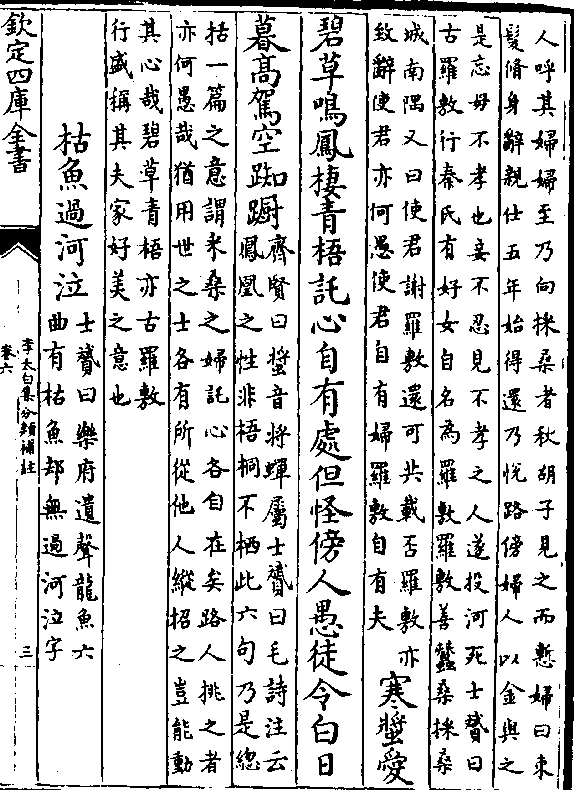 人呼其婦婦至乃向採桑者秋胡子見之而慙婦曰束
髮脩身辭親仕五年始得還乃悅路傍婦人以金與之
是忘母不孝也妾不忍見不孝之人遂投河死士贇曰
古羅敷行秦氏有好女自名為羅敷羅敷善蠶桑採桑
城南隅又曰使君謝羅敷還可共載否羅敷亦
致辭使君亦何愚使君自有婦羅敷自有夫
寒螿愛
碧草鳴鳳棲青梧託心自有處但怪傍人愚徒令白日
暮高駕空踟蹰
齊賢曰螿音將蟬屬士贇曰毛詩注云
鳳凰之性非梧桐不栖此六句乃是總
括一篇之意謂米桑之婦託心各自在矣路人挑之者
亦何愚哉猶用世之士各有所從他人縱招之豈能動
其心哉碧草青梧亦古羅敷
行盛稱其夫家好美之意也
枯魚過河泣
士贇曰樂府遺聲龍魚六
曲有枯魚却無過河泣字
欽定四庫全書
李太白集分類補註
卷六
三